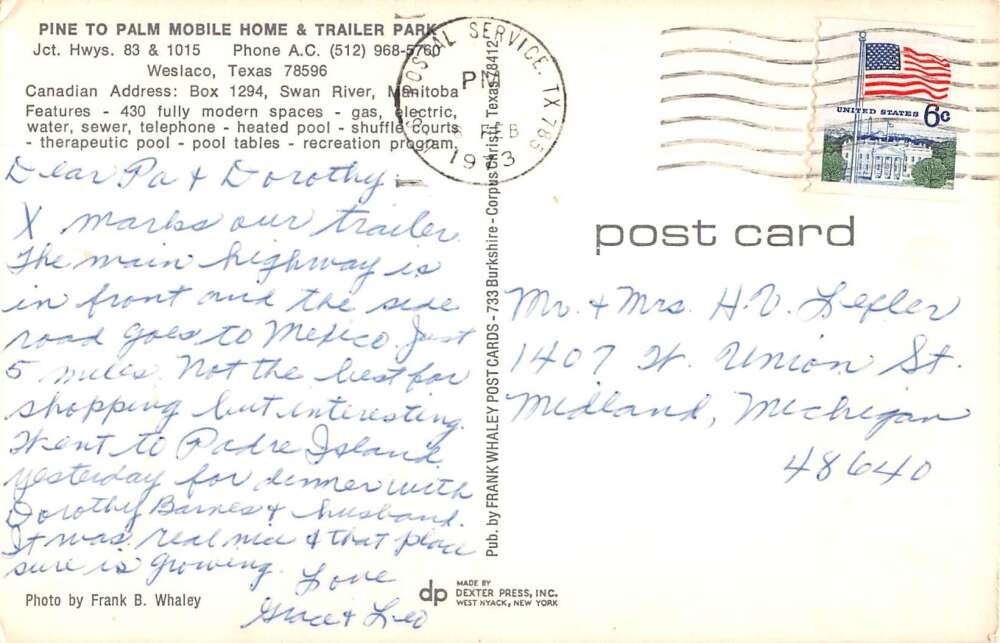 PINE TO PALM MOBILE HOME & TRAILER PARK
Jct. Hwys. 83 & 1015 Phone A.C. (512) 968-5760
Weslaco, Texas 78596
Canadian Address: Box 1294, Swan River, Manitoba
Features - 430 fully modern spaces - gas, electric,
water, sewer, telephone - heated pool - shuffle courts
- therapeutic pool - pool tables - recreation program.
Dear Pa & Dorothy
X marks our trailer.
The main highway is
in front and the side
road goes to Mexico. Just
5 miles. Not the best for
shopping but interesting.
Went to Padre Island
yesterday for dinner with
Dorothy Barnes & husband.
It was real nice & that place
sure is growing.
Love
Grace & Leo
Photo by Frank B. Whaley
Pub. by FRANK WHALEY POST CARDS - 733 Burkshire - Corpus Christi, Texas 78412
dp MADE BY
DEXTER PRESS, INC.
WEST NYACK, NEW YORK
POSTAL SERVICE, TX 785
PM
FEB
1973
UNITED STATES 6c
post card
Mr. & Mrs. H. V. Lefler
1407 W. Union St.
Midland, Michigan
48640